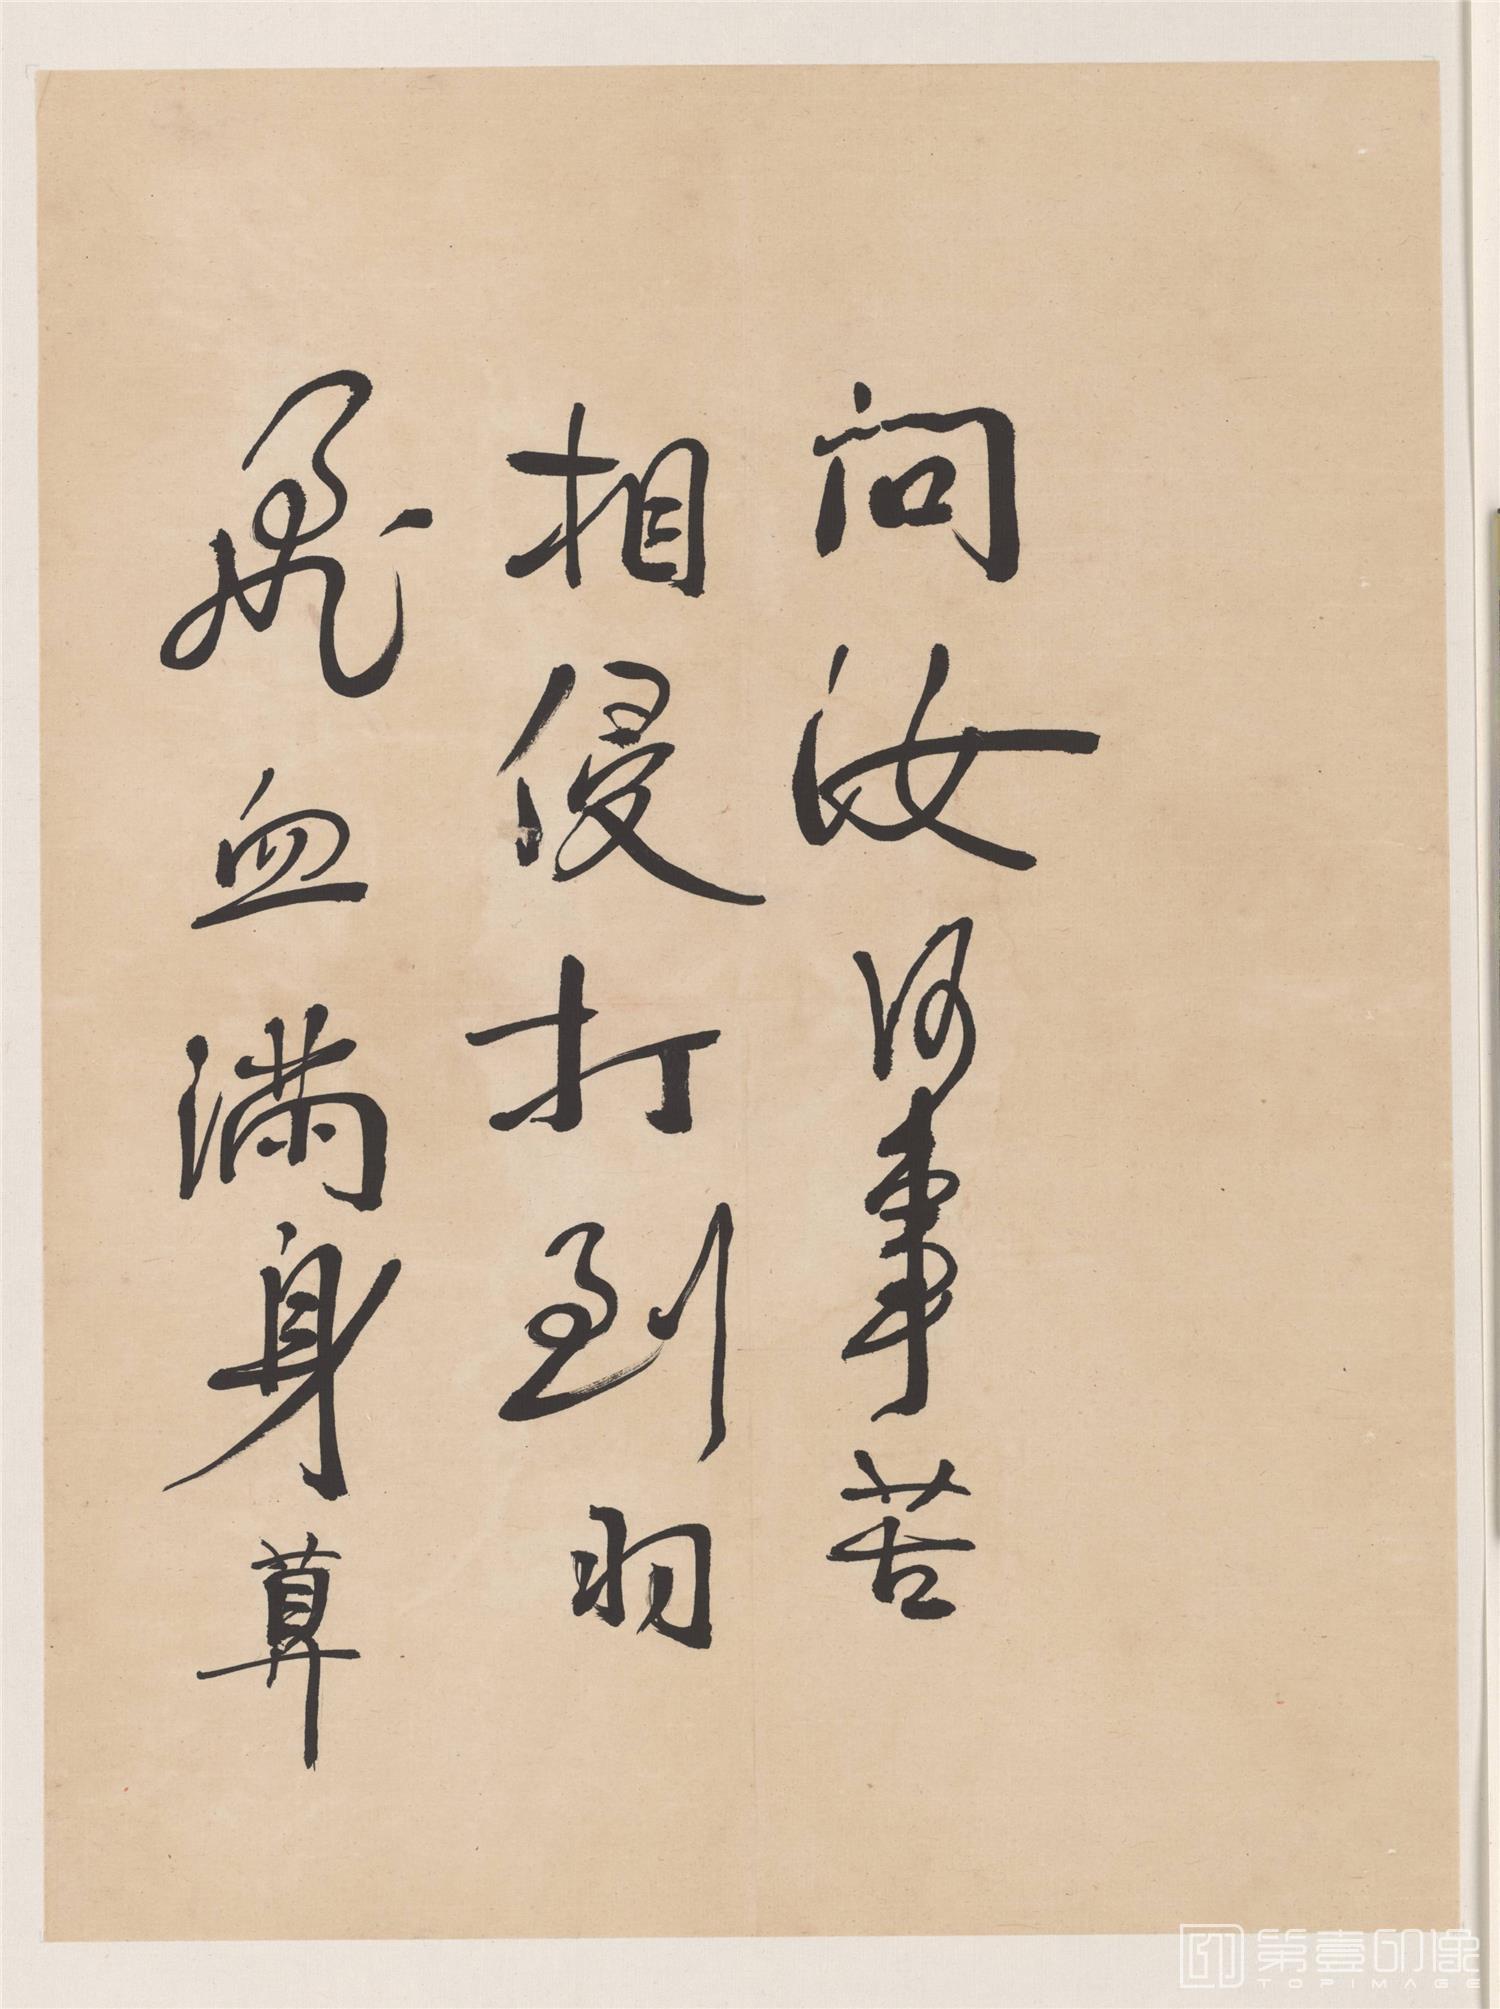 问汝何事苦
相侵打到羽
飛血满身算
第壹印像
TOPIMAGE